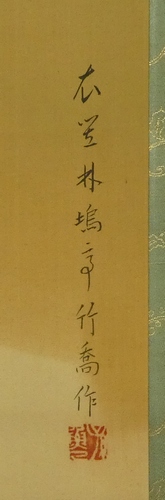 衣笠林塢亭竹喬作